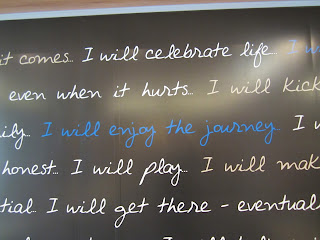 it comes... I will celebrate life... I
even when it hurts... I will kick
I will enjoy the journey... I
honest... I will play... I will
I will get there - eventual